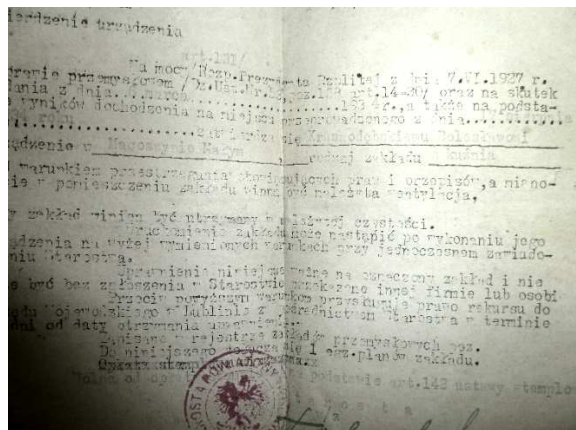 ierdzenie urządzenia
art.131/
Na mocy Rozp. Prezydenta Rzplitej z dnia 7.VI.1927 r.
prawie przemysłowym /Dz.Ust.Nr. poz. art.14 oraz na skutek
dania z dnia... marca 193 r., a także na podsta-
wie wyników dochodzenia na miejscu przeprowadzonego z dnia
roku zatwierdza się Krasnodębskiemu Bolesławowi
ządzenie w rodzaj zakładu kuźnia
warunkiem przestrzegania obowiązujących praw i przepisów, a miano-
ie w pomieszczeniu zakładu winna być należyta wentylacja,
y zakład winien być utrzymany w należytej czystości.
Uruchomienie zakładu może nastąpić po wykonaniu jego
ądzenia na wyżej wymienionych warunkach przy jednoczesnem zawiado-
niu Starostwa.
Uprawnienie niniejsze ważne na oznaczony zakład i nie
e być bez zgłoszenia w Starostwie przekazane innej firmie lub osobi
Przeciw powyższym warunkom przysługuje prawo rekursu do
ędu Wojewódzkiego w Lublinie za pośrednictwem Starostwa w terminie
dni od daty otrzymania
Zapisano w rejestrze zakładów przemysłowych poz.
Do niniejszego dołącza się 1 egz.planów zakładu.
Opłatę stemplową
Wolne od opłaty podstawie art.142 ustawy stemplo
STAROSTA POWIATOWY
Starosta